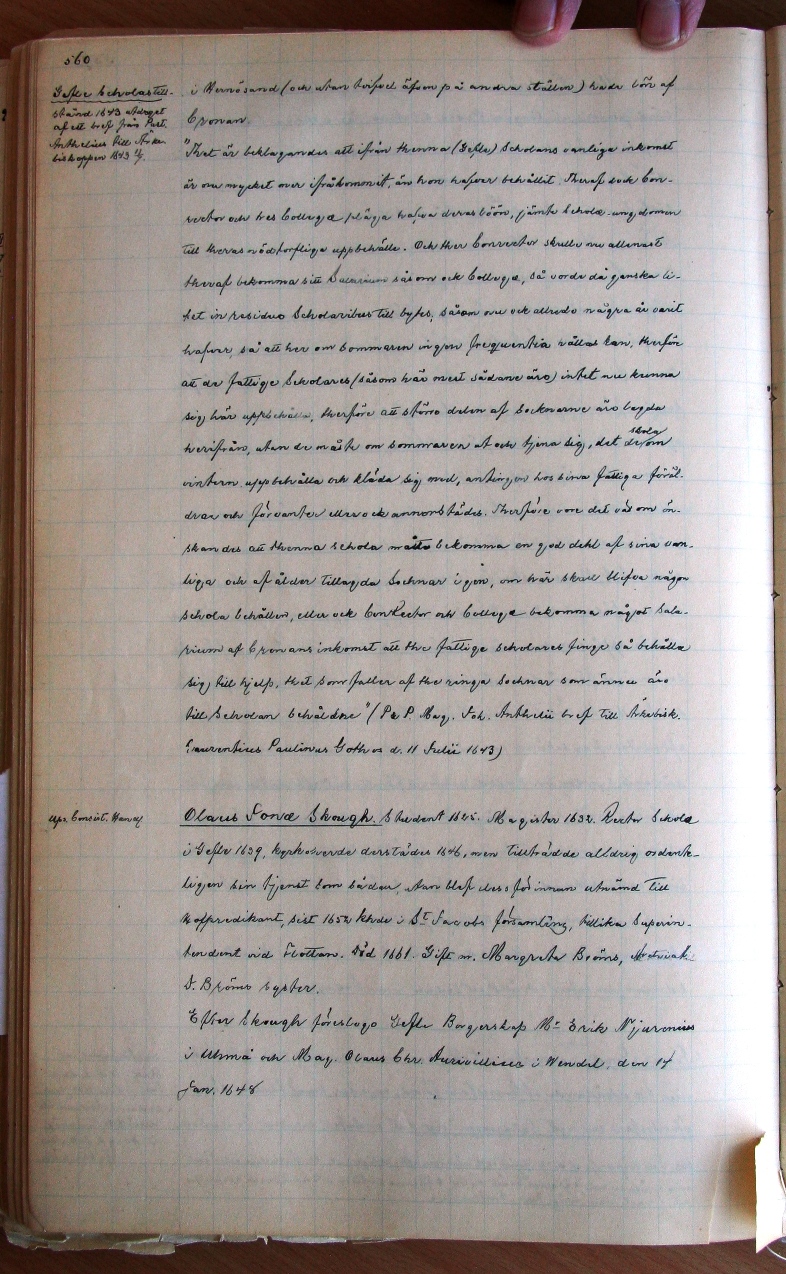 560
Gefle Scholas till-
stånd 1643 utdraget
af ett bref från Past.
Anthelius till Ärke
biskoppen 1643
i Hernösand (och utan tvifvel äfven på andra ställen) hade lön af
Cronan.
"Thet är beklagandes att ifrån thenna (Gefle) Scholans vanliga inkomst
är nu mycket over ifråkommit, än hon hafver behållit. Theraf dock Con-
rector och tres Collegæ pläga hafva deras löön, jämte Scholæ-ungdomen
till theras nödtorftliga uppehälle. Och ther Conrector skulle nu allenast
theraf bekomma sitt Salarium såsom ock Collegæ, så vorde då ganska li-
tet in residuo Scholaribus till bytes, såsom nu ock allredo några år varit
hafver, så att her om sommaren ingen frequentia hållas kan, therföre
att de fattige Scholares (såsom här mest sådane äro) intet nu kunna
sig här uppehålla, therföre att större delen af Socknarne äro lagda
herifrån, utan de måste om sommaren ut och tjena sig, det de skola om
vintern uppehålla och kläda sig med, antingen hos sina fattiga föräl-
drar och förvanter eller ock annorstädes. Therföre vore det väl om ön-
skandes att thenna schola måtte bekomma en god dehl af sina van-
liga och af ålder tillagda Sochnar igen, om här skall blifva någon
schola behållen, eller ock ConRector och Collegæ bekomma något Sala-
rium af Cronans inkomst att the fattige scholares finge så behålla
sig till hjelp, thet som faller af the ringa Sochnar som ännu äro
till Scholan behåldne" (P. P. Mag. Joh. Anthelii bref till Ärkebisk.
Laurentius Paulinus Gothus d. 11 Julii 1643)
Ups. Consist. Handl.
Olaus Jonæ Skough. Student 1625. Magister 1632. Rector Scholæ
i Gefle 1639, kyrkoherde derstädes 1646, men tillträdde alldrig ordent-
ligen sin tjenst som sådan, utan blef dessförinnan utnämd till
Hofpredikant, sist 1652 khde i St Jacobs församling, tillika Superin-
tendent vid Flottan. Död 1661. Gift m. Margreta Bröms,
D. Bröms syster.
Efter Skough föreslogo Gefle Borgerskap Mr Erik Njurenius
i Uhmå och Mag. Olaus Chr. Aurivillius i Wendel, den 14
Jan. 1648